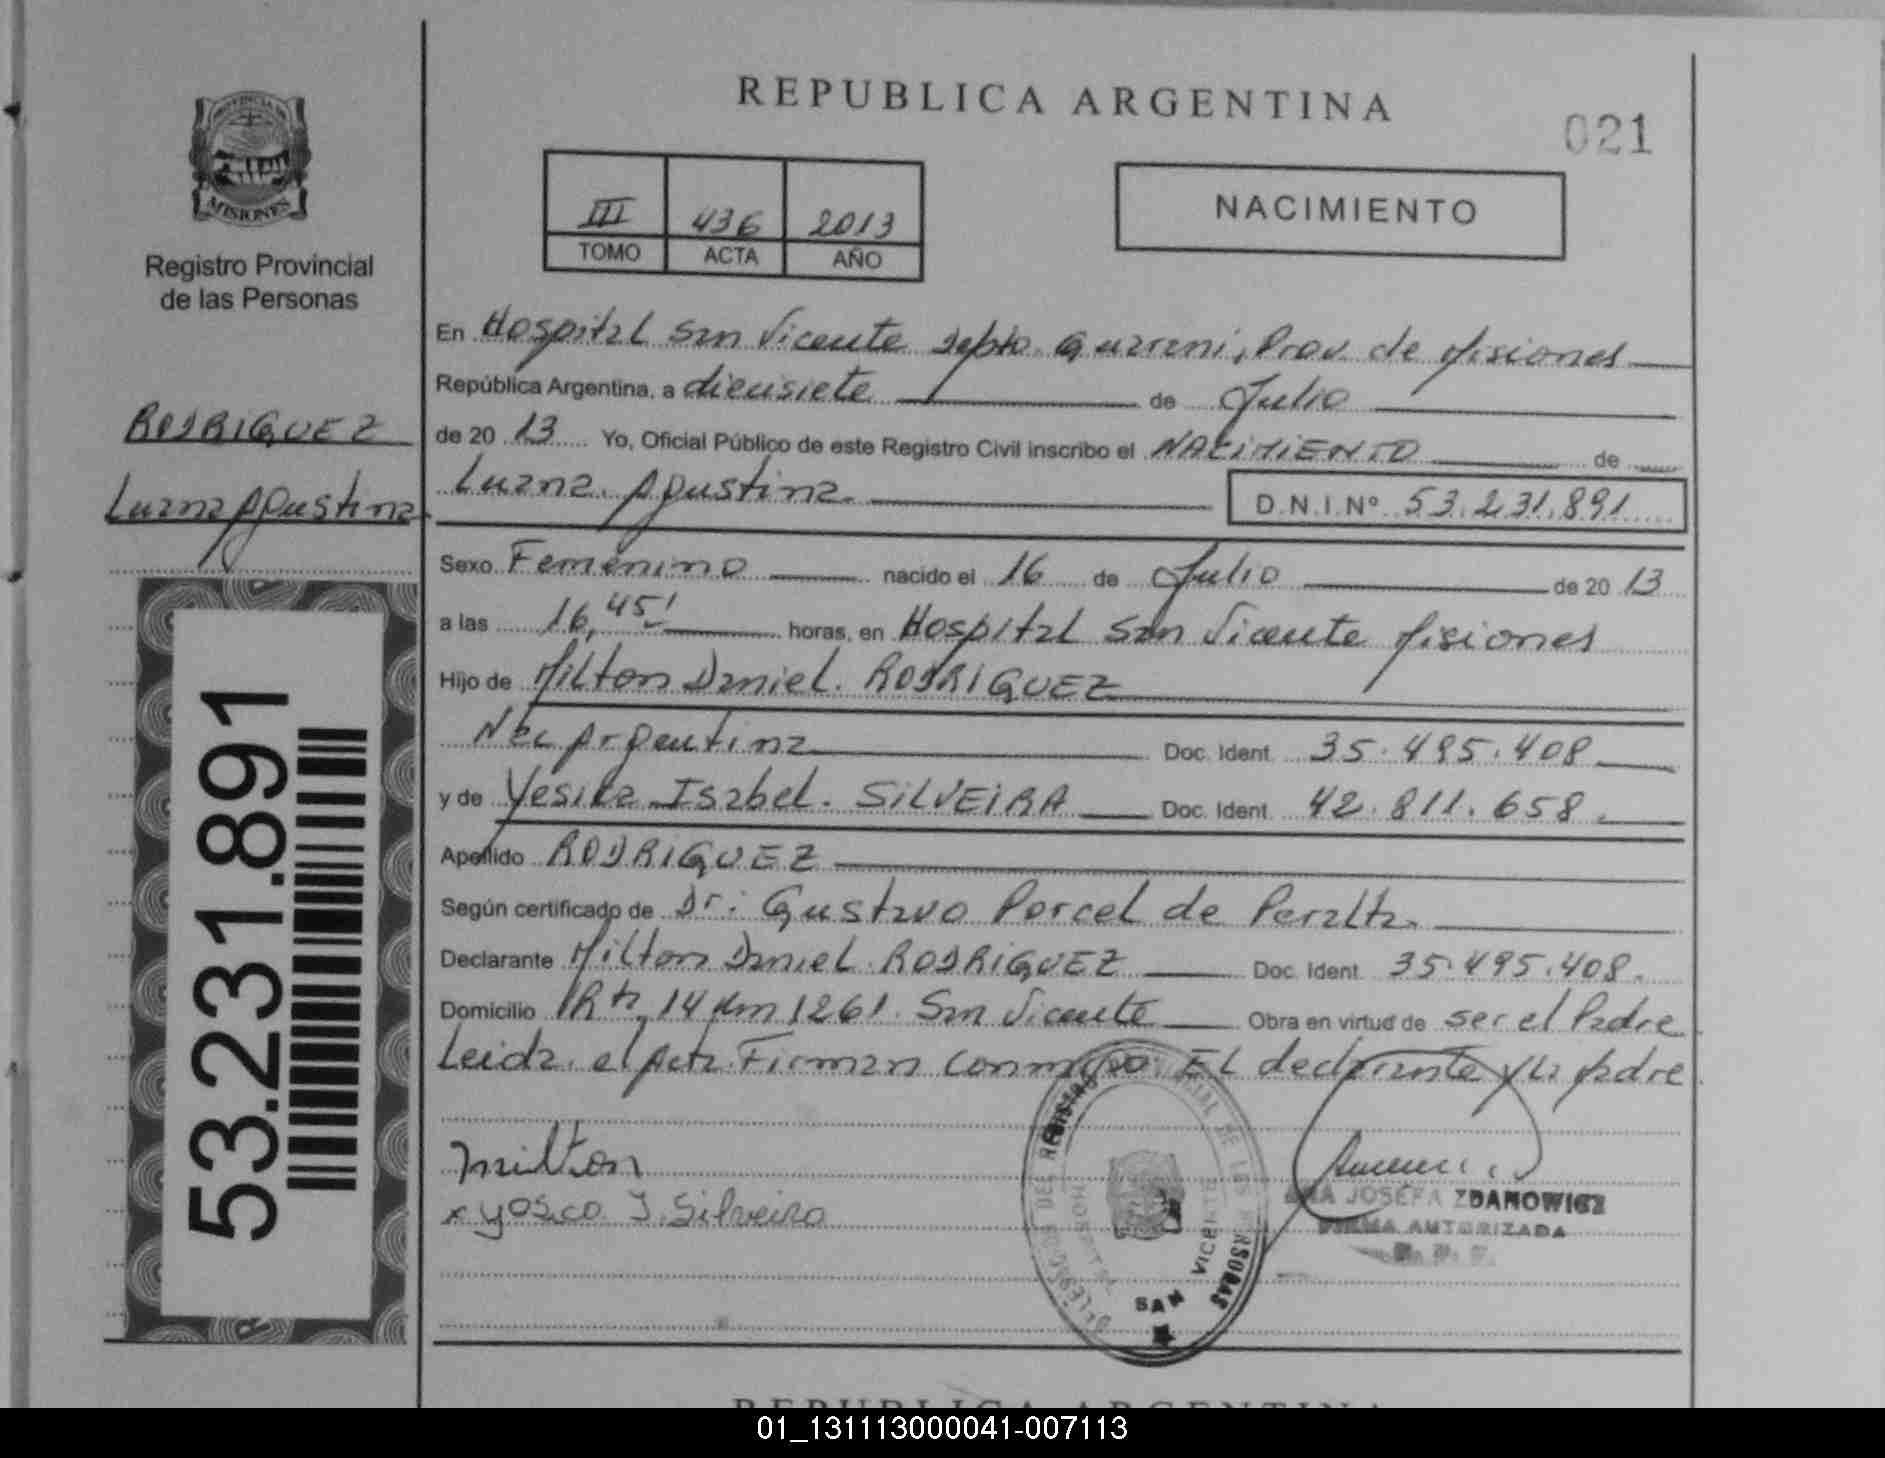 REPUBLICA ARGENTINA
021
PROVINCIA DE
MISIONES
Registro Provincial
de las Personas
III 436 2013
TOMO ACTA AÑO
NACIMIENTO
RODRIGUEZ
Luana Agustina
53.231.891
En Hospital San Vicente Dpto. Guarani, Prov. de Misiones
República Argentina, a diecisiete de Julio
de 20 13 Yo, Oficial Público de este Registro Civil inscribo el NACIMIENTO de
Luana. Agustina. D.N.I.Nº 53.231.891
Sexo Femenino nacido el 16 de Julio de 20 13
a las 16,45' horas, en Hospital San Vicente Misiones
Hijo de Milton Daniel. RODRIGUEZ
Nac Argentina Doc. Ident. 35.495.408
y de Yesica Isabel. SILVEIRA Doc. Ident. 42.811.658.
Apellido RODRIGUEZ
Según certificado de Dr: Gustavo Porcel de Peralta.
Declarante Milton Daniel RODRIGUEZ Doc. Ident. 35.495.408.
Domicilio Rta. 14 Km 1261. San Vicente Obra en virtud de ser el Padre
Leida el Acta Firman conmigo EL declarante y la padre
milton
x yosco I. Silveira
SAN VICENTE
JOSEFA ZDANOWICZ
FIRMA AUTORIZADA
REPUBLICA ARGENTINA
01_131113000041-007113